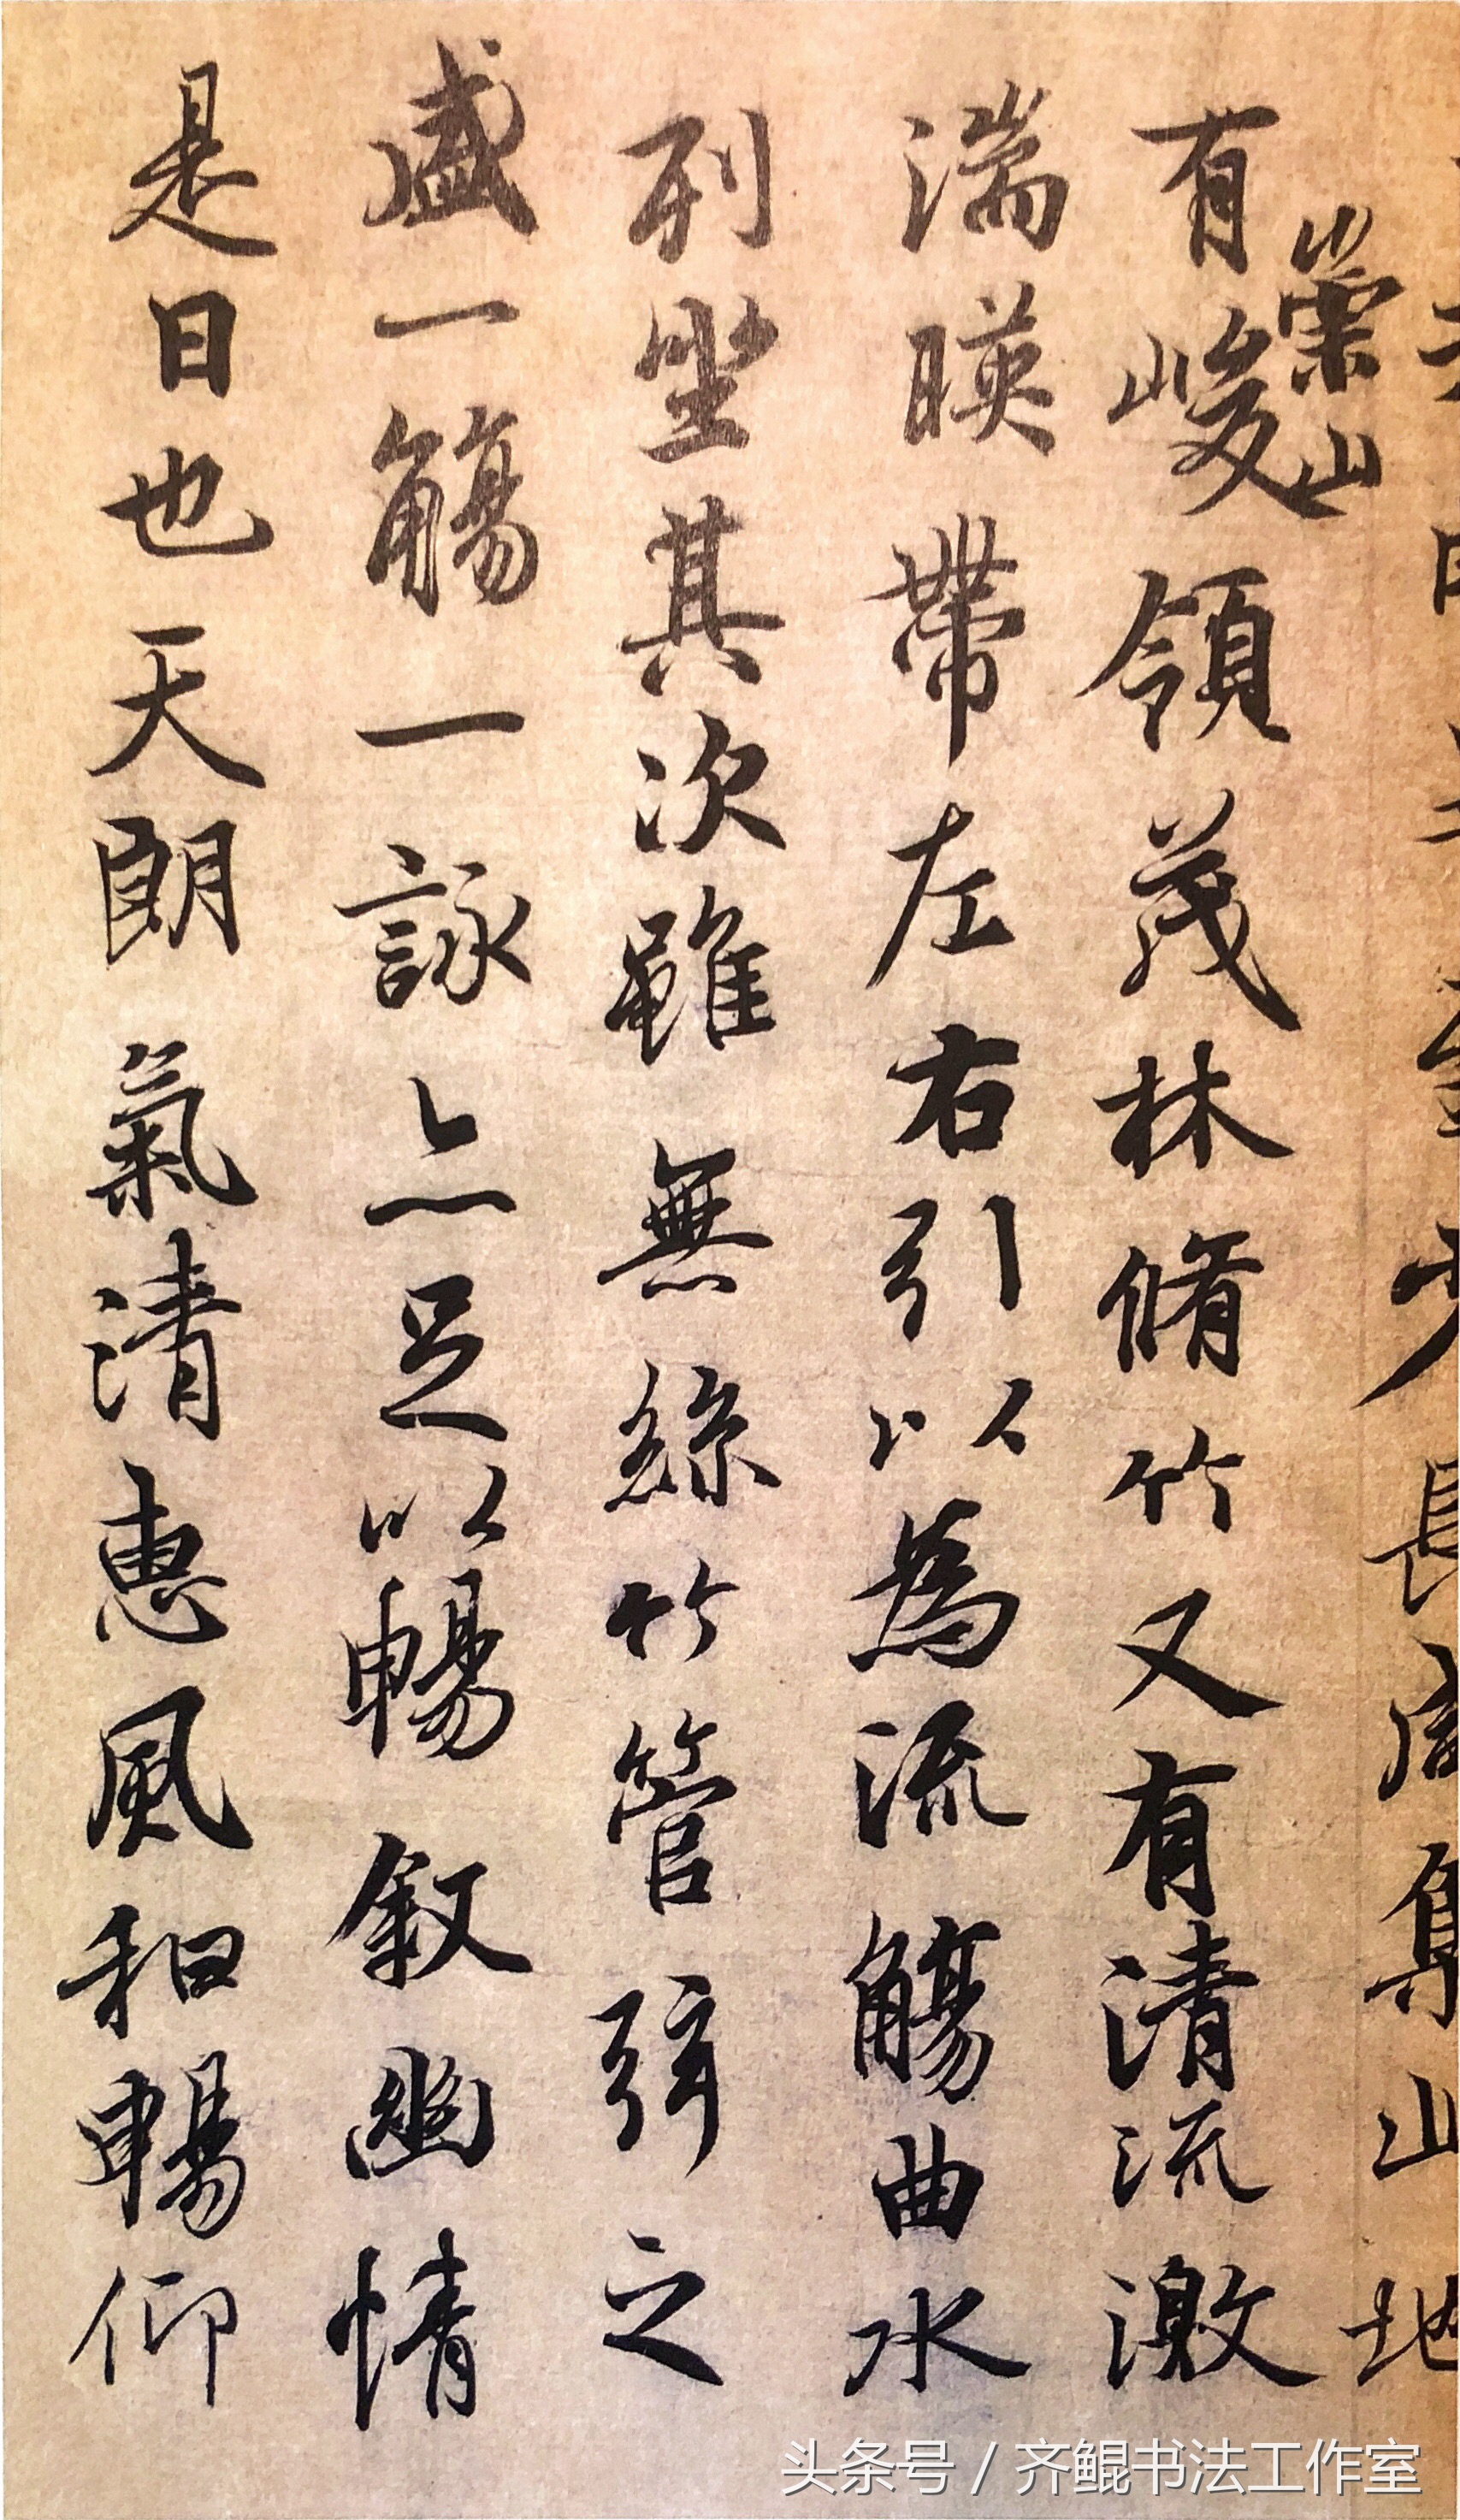 少長咸集此地
崇山
有峻領茂林脩竹又有清流激
湍暎帶左右引以為流觴曲水
列坐其次雖無絲竹管弦之
盛一觴一詠亦足以暢敘幽情
是日也天朗氣清惠風和暢仰
头条号 / 齐鲲书法工作室